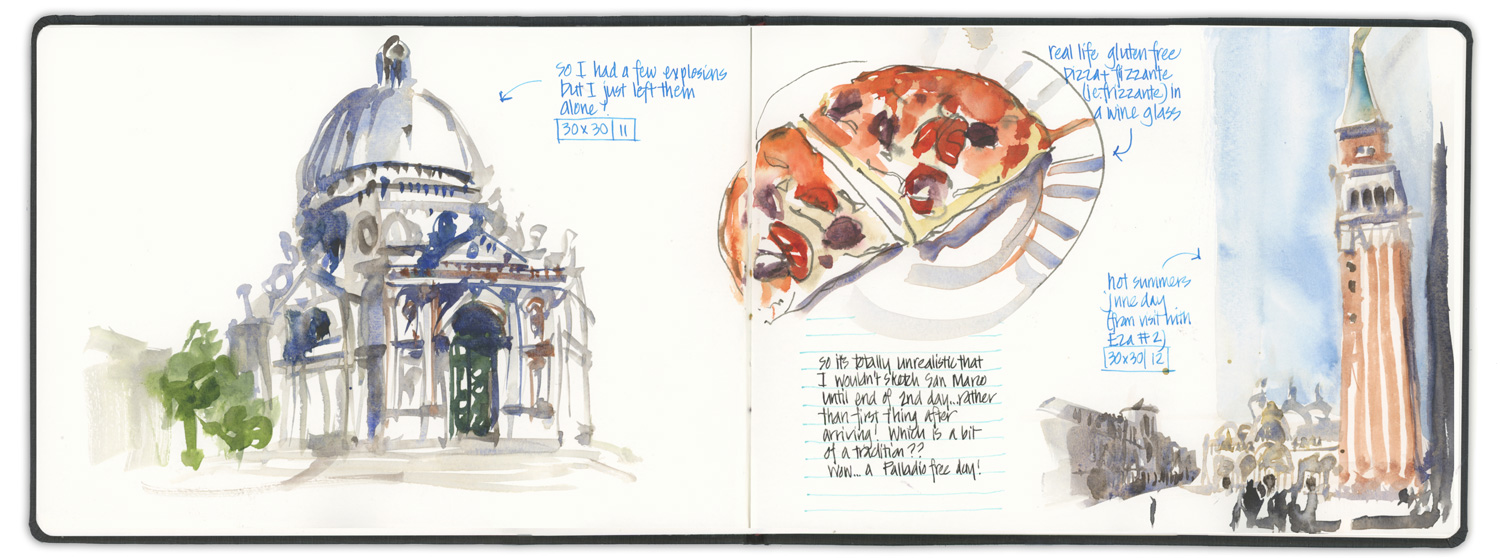 so I had a few explosions
but I just left them
alone!
30x30 | 11
real life gluten free
pizza + frizzante
(ie frizzante) in
a wine glass
hot summers
june day
(from visit with
Eza #2)
30x30 | 12
so its totally unrealistic that
I wouldn't sketch San Marco
until end of 2nd day...rather
than first thing after
arriving! Which is a bit
of a tradition??
Wow... a Palladio free day!